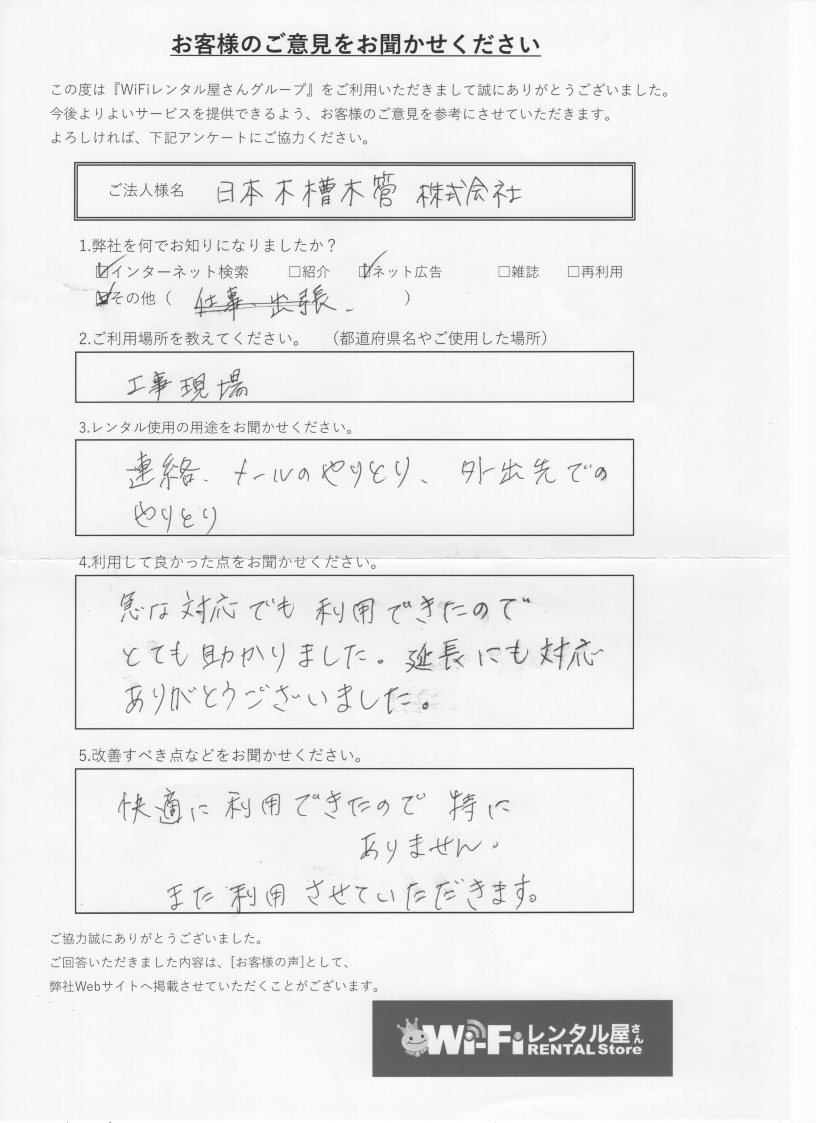 お客様のご意見をお聞かせください
この度は『WiFiレンタル屋さんグループ』をご利用いただきまして誠にありがとうございました。
今後よりよいサービスを提供できるよう、お客様のご意見を参考にさせていただきます。
よろしければ、下記アンケートにご協力ください。
ご法人様名 日本木槽木管 株式会社
1.弊社を何でお知りになりましたか？
☑インターネット検索 □紹介 ☑ネット広告 □雑誌 □再利用
☑その他（ 仕事、出張、 ）
2.ご利用場所を教えてください。 （都道府県名やご使用した場所）
工事現場
3.レンタル使用の用途をお聞かせください。
連絡、メールのやりとり、外出先での
やりとり
4.利用して良かった点をお聞かせください。
急な対応でも利用できたので
とても助かりました。延長にも対応
ありがとうございました。
5.改善すべき点などをお聞かせください。
快適に利用できたので特に
ありません。
また利用させていただきます。
ご協力誠にありがとうございました。
ご回答いただきました内容は、[お客様の声]として、
弊社Webサイトへ掲載させていただくことがございます。
Wi-Fiレンタル屋さん
RENTAL Store